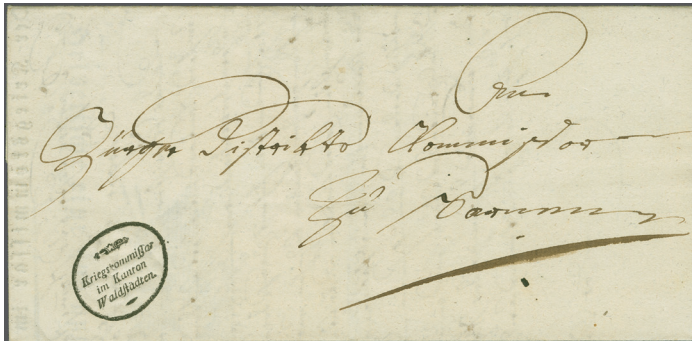 Bürger Distrikts Commissar
Zu Sarnen
Kriegscommißar
im Kanton
Waldstädten.